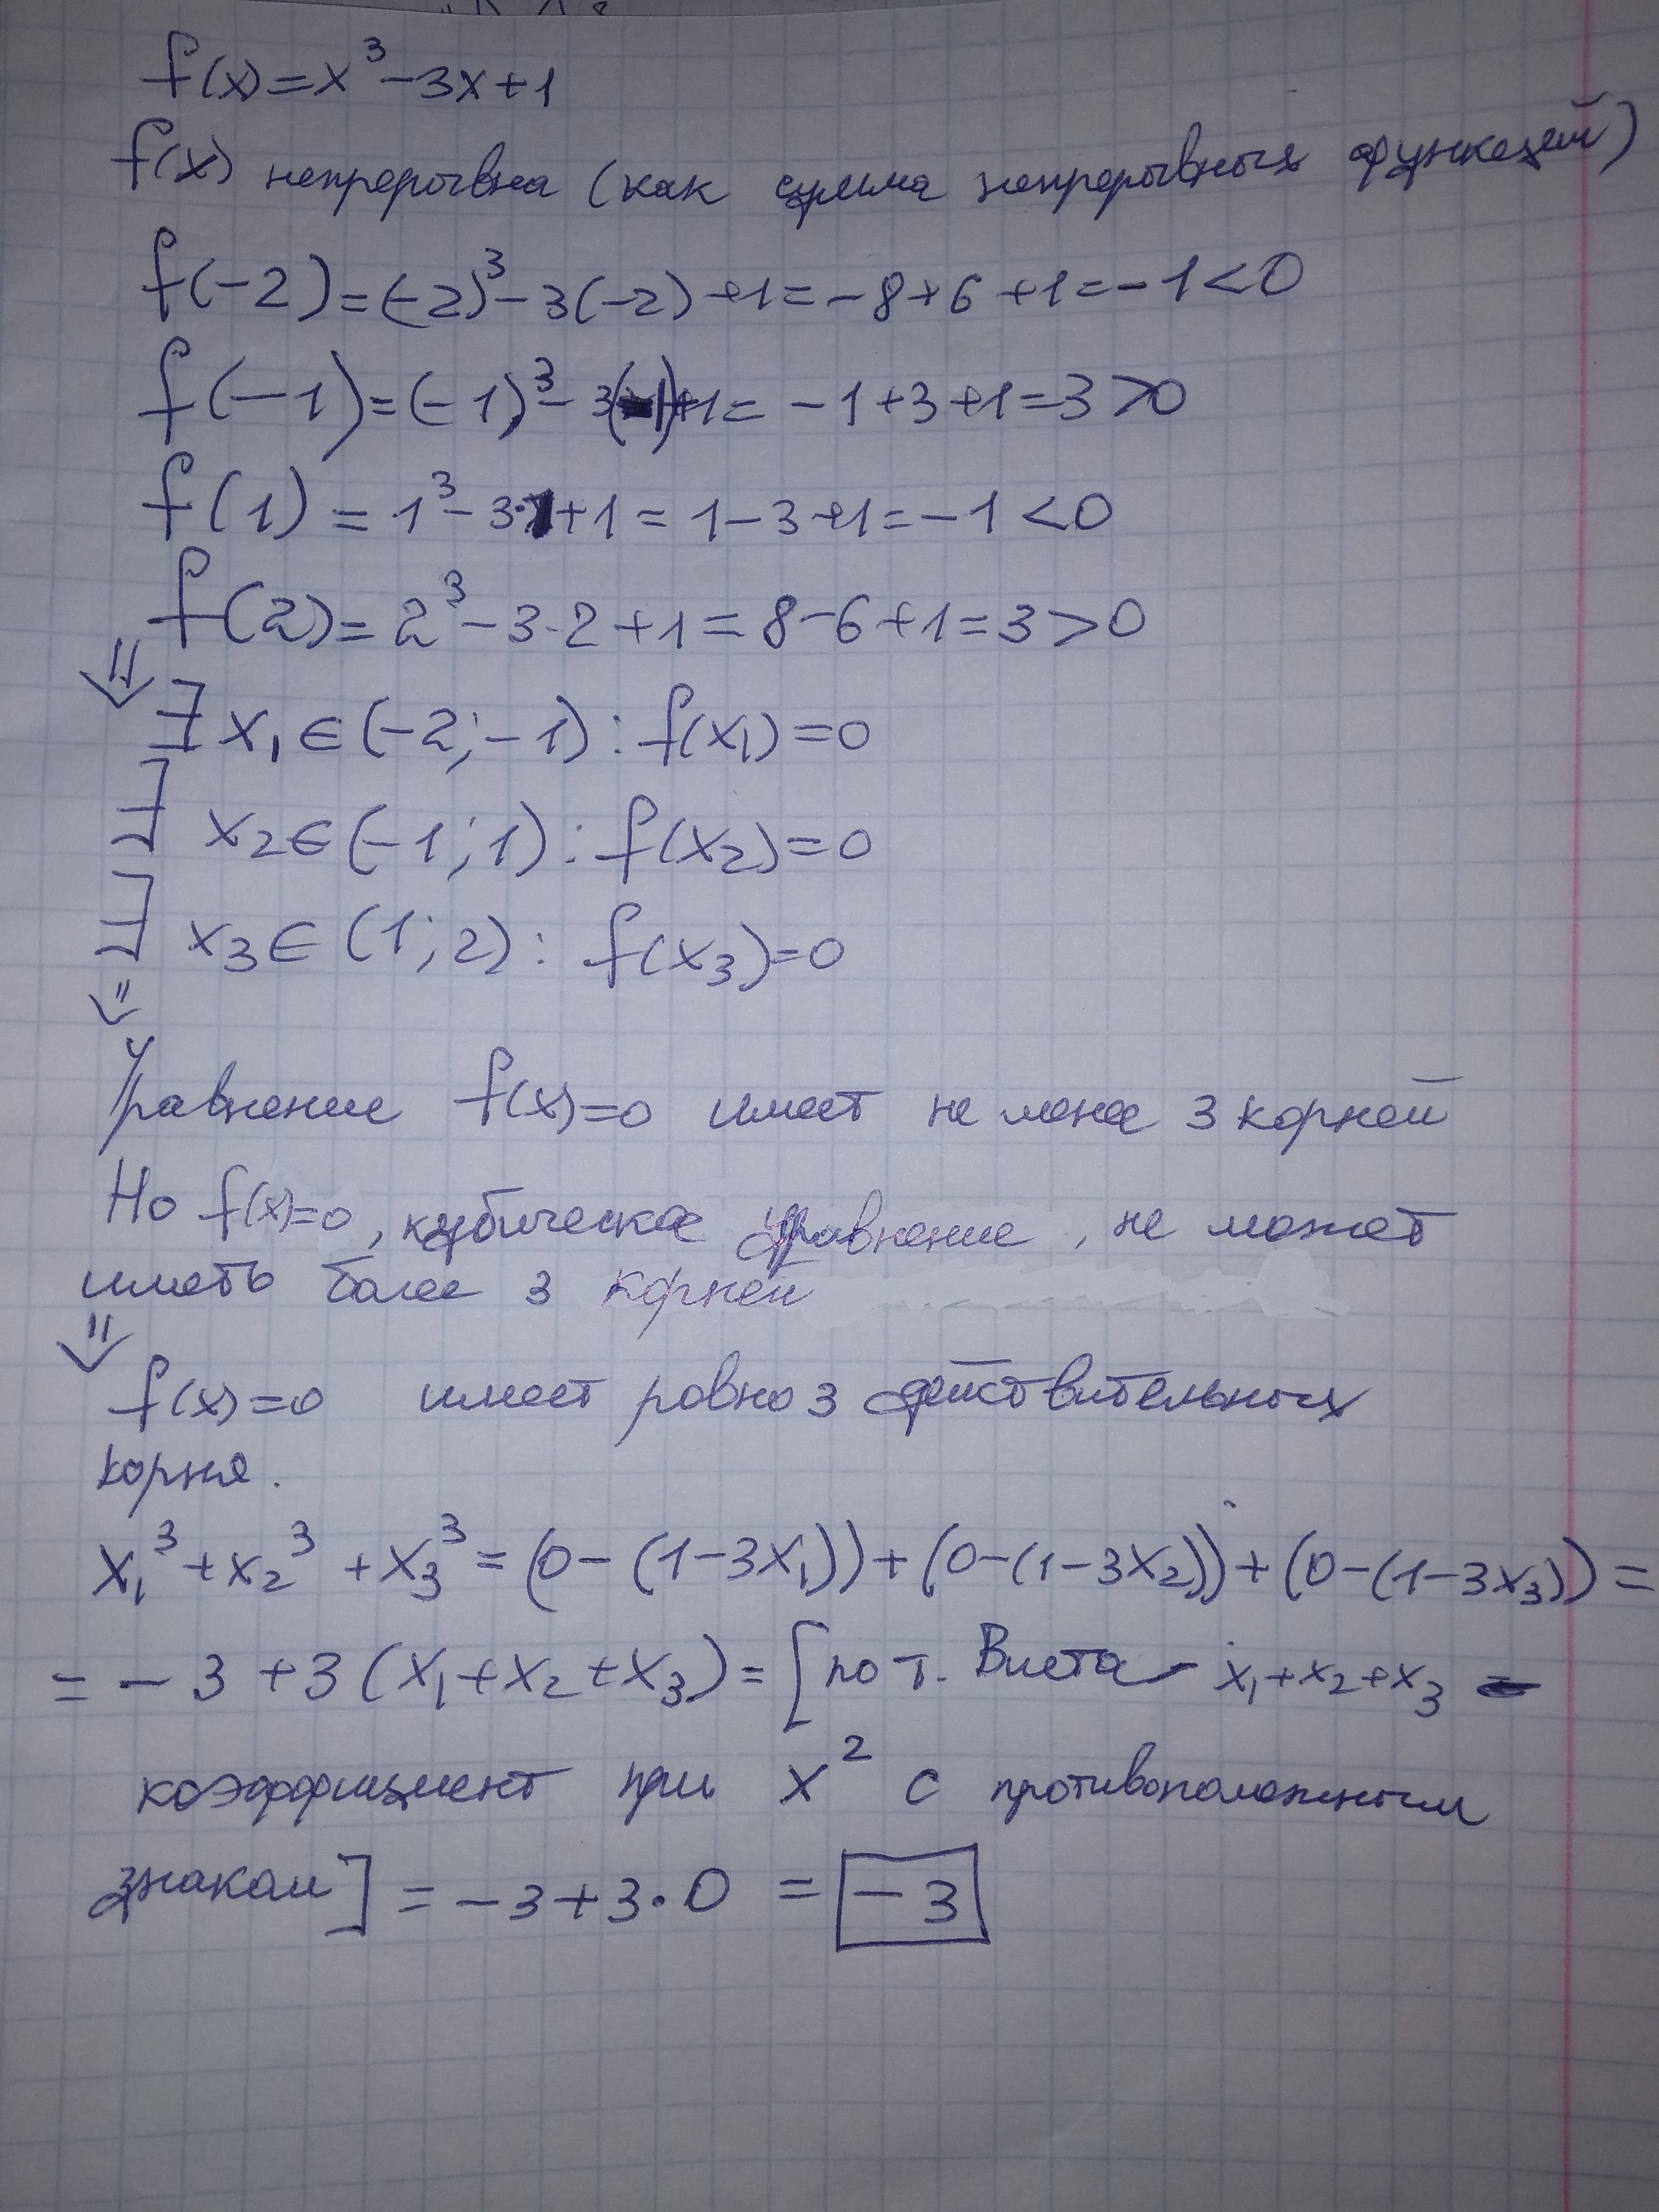 f(x)=x³-3x+1
f(x) непрерывна (как сумма непрерывных функций)
f(-2)=(-2)³-3(-2)+1=-8+6+1=-1<0
f(-1)=(-1)³-3(-1)+1=-1+3+1=3>0
f(1)=1³-3·1+1=1-3+1=-1<0
f(2)=2³-3·2+1=8-6+1=3>0
⇓
∃ x₁∈(-2;-1): f(x₁)=0
∃ x₂∈(-1;1): f(x₂)=0
∃ x₃∈(1;2): f(x₃)=0
⇓
Уравнение f(x)=0 имеет не менее 3 корней
Но f(x)=0, кубическое уравнение, не может
иметь более 3 корней
⇓
f(x)=0 имеет ровно 3 действительных
корня.
x₁³+x₂³+x₃³=(0-(1-3x₁))+(0-(1-3x₂))+(0-(1-3x₃))=
=-3+3(x₁+x₂+x₃)=[по т. Виета x₁+x₂+x₃ -
коэффициент при x² с противоположным
знаком]=-3+3·0=-3